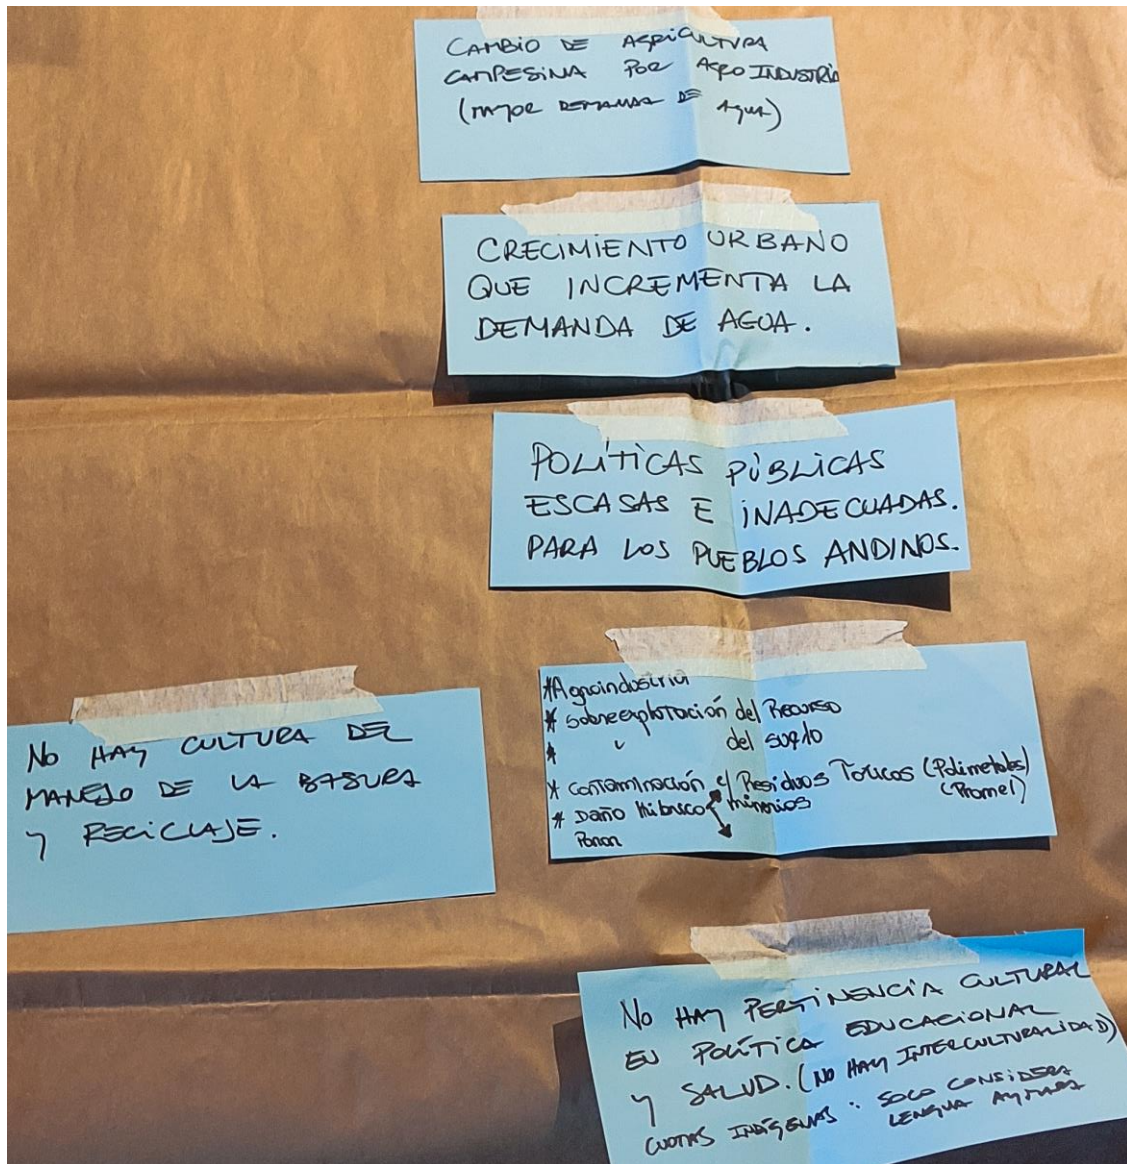 CAMBIO DE AGRICULTURA
CAMPESINA POR AGROINDUSTRIA
(MAYOR DEMANDA DE AGUA)
CRECIMIENTO URBANO
QUE INCREMENTA LA
DEMANDA DE AGUA.
POLÍTICAS PÚBLICAS
ESCASAS E INADECUADAS.
PARA LOS PUEBLOS ANDINOS.
NO HAY CULTURA DEL
MANEJO DE LA BASURA
Y RECICLAJE.
*Agroindustria
* sobreexplotación del Recurso
* " del suelo
* Contaminación c/ Residuos Toxicos (Polimetales)
* Daño mineros (Promel)
NO HAY PERTINENCIA CULTURAL
EN POLÍTICA EDUCACIONAL
Y SALUD. (NO HAY INTERCULTURALIDAD)
CUOTAS INDÍGENAS: SOLO CONSIDERA
LENGUA AYMARA